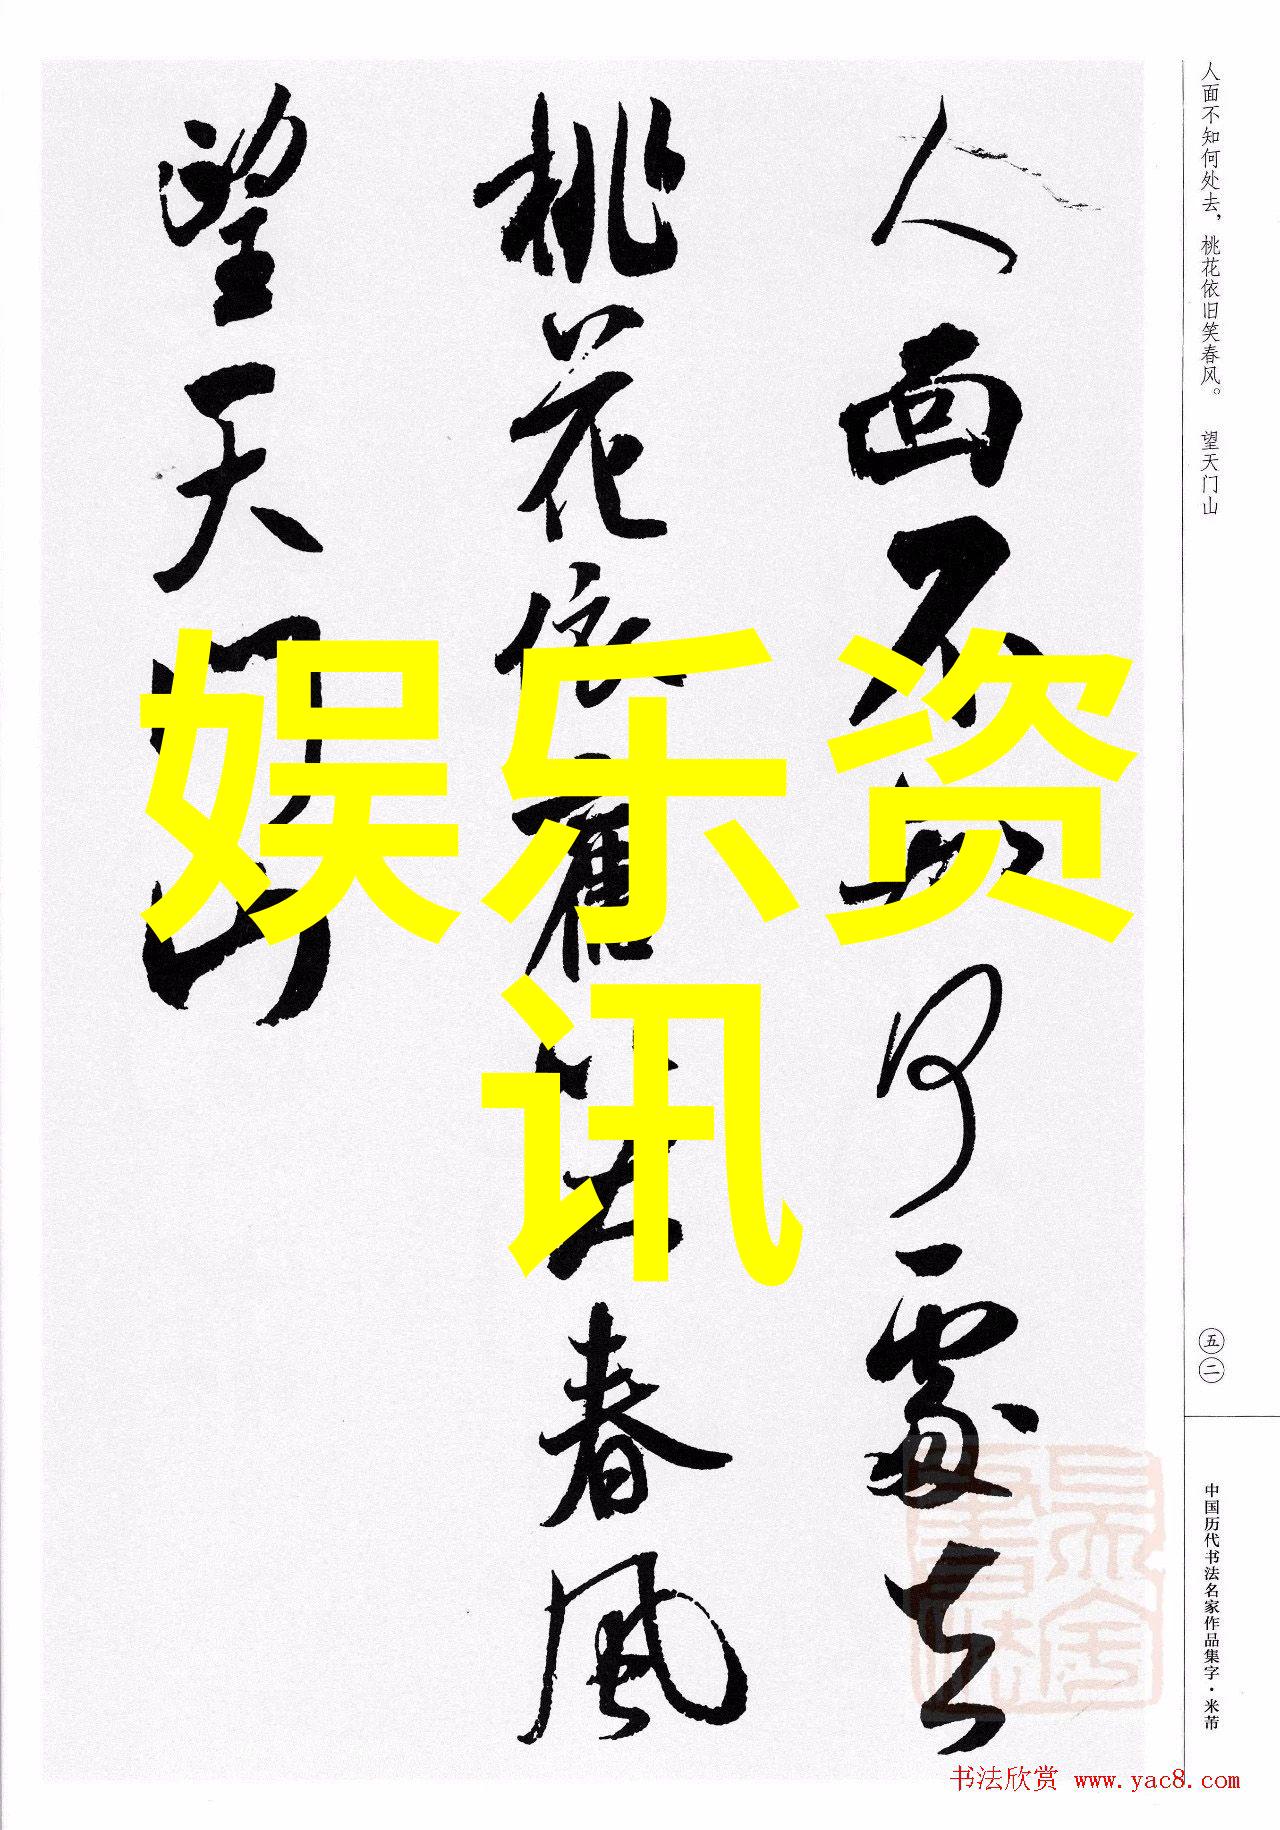 人面不知何處去
桃花依舊笑春風
望天门山
娱乐资
讯
人面不知何处去，桃花依旧笑春风。 望天门山
五二
中国历代书法名家作品集字·米芾
书法欣赏 www.yac8.com